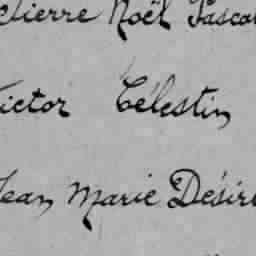 Pierre Noël Pascal
Victor Célestin
Jean Marie Désiré